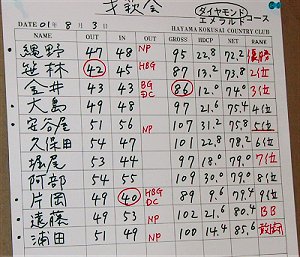 ダイヤモンド
エメラルド コース
DATE 01年 8月 3日
HAYAMA KOKUSAI COUNTRY CLUB
NAME OUT IN GROSS HDCP NET RANK
47 48 NP 95 22.8 72.2 優勝
笹林 42 45 HBG 87 13.2 73.8 2位
金井 43 43 BG DC 86 12.0 74.0 3位
大島 49 48 97 21.6 75.4 4位
安谷屋 51 56 NP 107 31.2 75.8 5位
久保田 54 47 101 22.8 78.2 6位
堀尾 53 44 97 18.0 79.0 7位
阿部 54 55 109 30.0 79.0 8位
片岡 49 40 HBG DC 89 9.6 79.4 9位
遠藤 49 53 NP 102 21.6 80.4 BB
浦田 51 49 NP 100 14.4 85.6